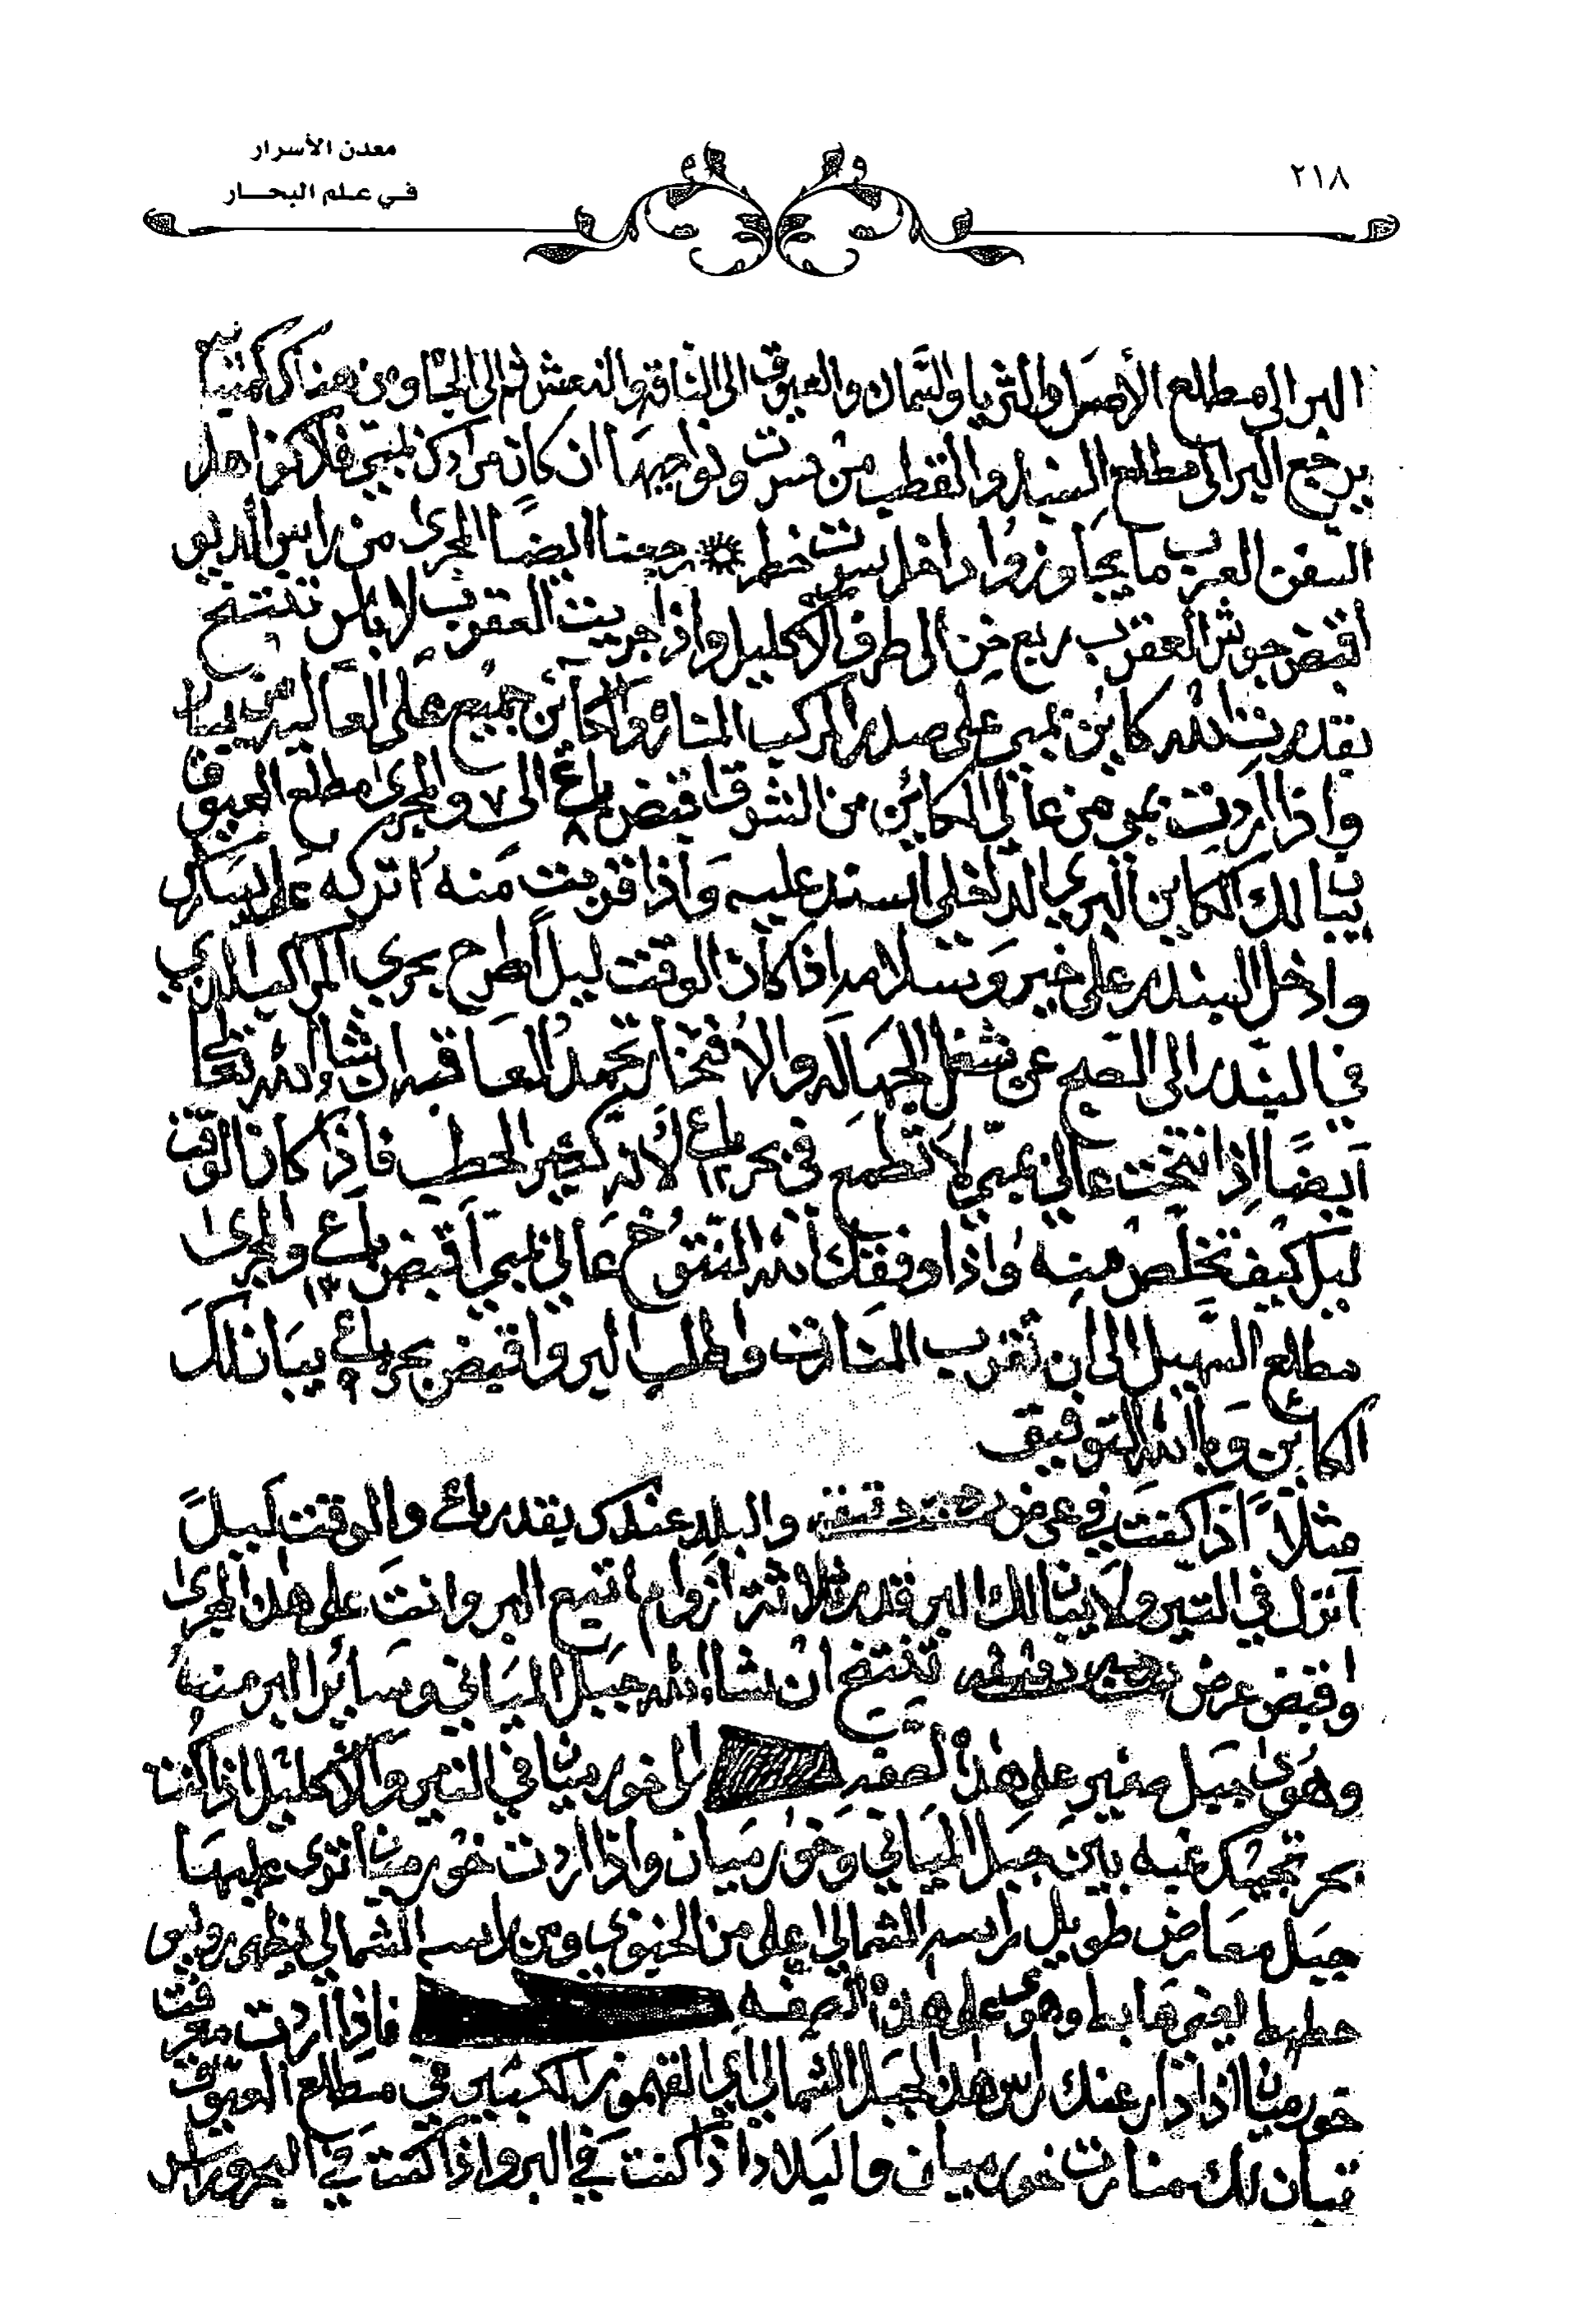 معدن الأسرار
في علم البحار
٢١٨
البر الى مطلع الأصل والثريا والسماك والعيوق الى الناقه والنعش ثم الى الجاه ومن هناك
يرجع البر الى مطلع السيل والقطب من سرت ونواجيها ان كان مرادك بمبي فلا تخوا هل
السفن العرب ما يجاوزوا داخل سرت خطر رجعنا ايضًا المجرى من راس الديو
أقبض جوش العقرب ربع خن الى طرف الأكليل واذا جريت العقرب لا باس تنتخ
بقدرت الله كاين بمبي على صدر المركب المناره والكائن جميع على العاليه من يسار
واذا اردت بمبي من عالي الكائن من الشرق اقبض باع ٨ الى ٧ والمجرى مطلع العيوق
يبا لك الكاين البري الداخلي اسند عليه وَاذا قربت منه اتركه على يسارك
وادخل البندر على خير وسلامه اذا كان الوقت ليلً اطرح بحري المراكب الذي
في البندر الى الصبح عن شغل الجهاله والافتخار تحمد العاقبه ان شاء الله تعا
أيضًا اذا نتخت عالي بمبي لا تطمع في بحر باع ١٢ لانه كثير الحطب فاذا كان الوقت
ليل كيف تخلص منه واذا وفقك الله النتوخ عالي بمبي أقبض باع ١٣ والمجرى
مطلع السهيل الى ان تقرب المنارت واطلب البر واقبض بحر باع ٩ يبان لك
الكائن وبالله التوفيق
مثلاً اذا كنت في عرض درجه دقيقه والبلد عندك بقدر باع والوقت ليلً
أنزل في التير ولا يبان لك البر قدر ثلاثة أزوام اتبع البر وانت على هذا المجرى
واقبض عرض درجه دقيقه تنتخ ان شاء الله جبل المياني وسائر البر منه
وهوى جبل صغير على هذه الصفه الى خور ميان في التير والأكليل اذا كنت
بحر تجيك غبه بين جبل المياني وخور ميان واذا اردت خور ميان ترى عليها
جبل معارض طويل راسه الشمالي اعلى من الجنوبي ومن راسه الشمالي يظهر ويس
حطهط يعني هابط وهوى على هذه الصفه فاذا اردت معرفت
خور ميان اذا دار عندك راس هذا الجبل الشمالي اي القهموز الكبير في مطلع العيوق
تبان لك منارت خور ميان واليلاد اذا كنت في البر واذا كنت في البحر وراس